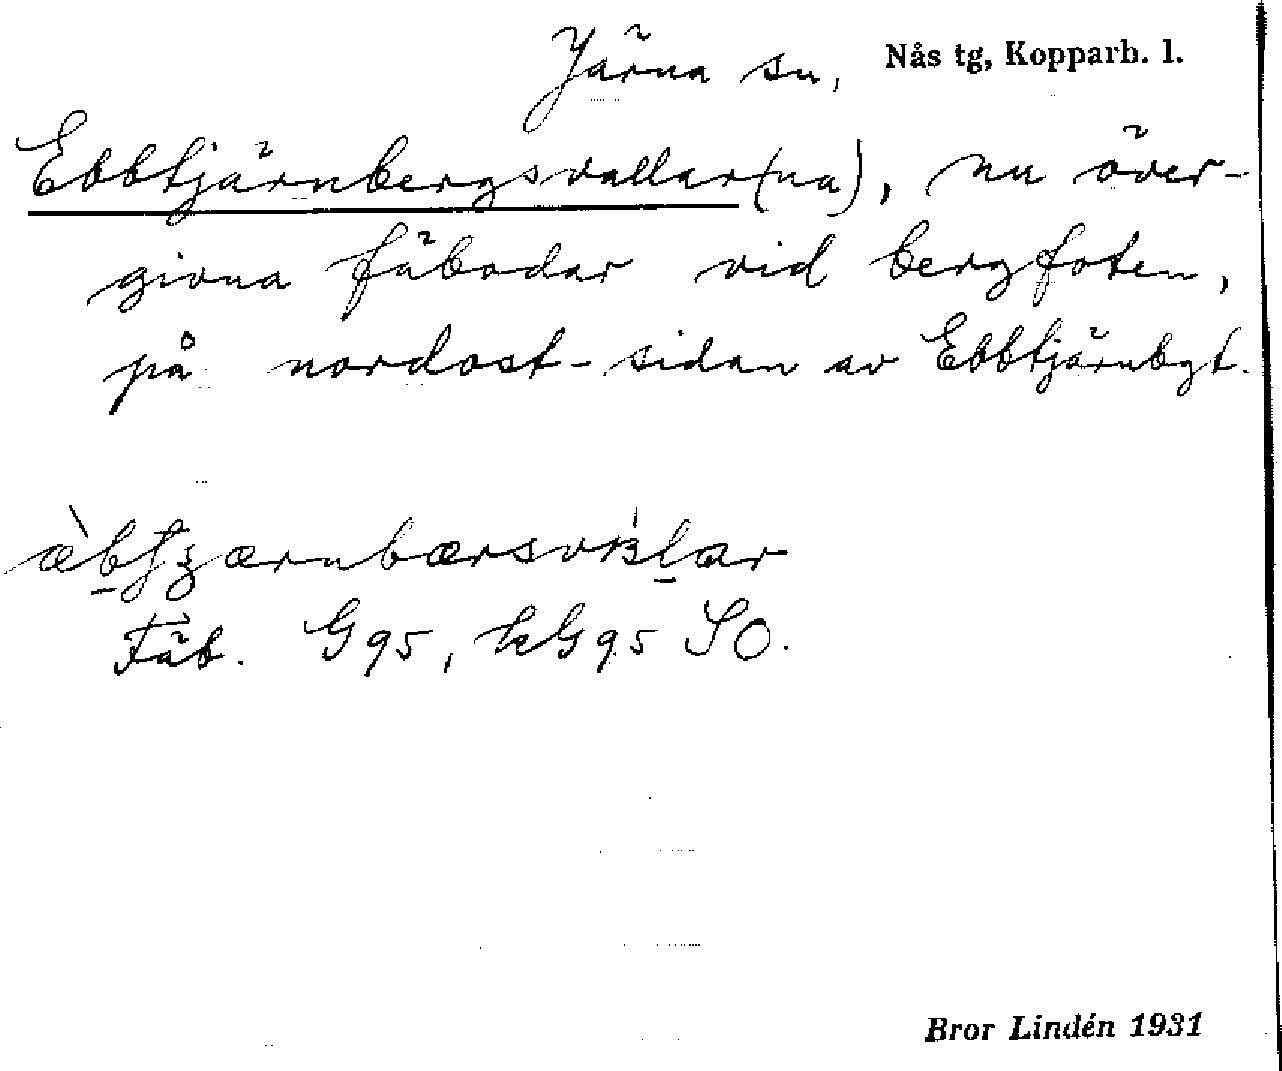 Järna sn, Nås tg, Kopparb. l.
Ebbtjärnbergsvallar(na), nu över-
givna fäbodar vid bergfoten,
på nordost-sidan av Ebbtjärnbgt.
Fäb. G95, kG95 SO.
Bror Lindén 1931